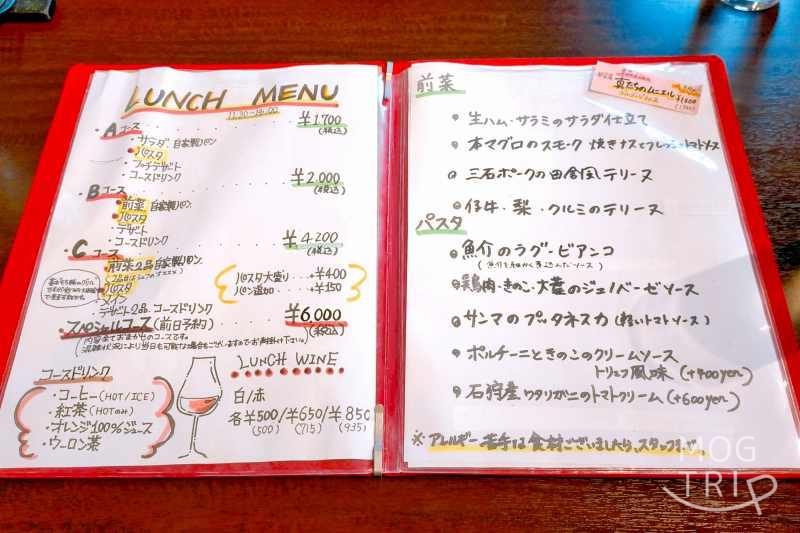 LUNCH MENU
11:30~14:00
・Aコース ¥1,700
(税込)
・サラダ 自家製パン
・パスタ
・プチデザート
・コースドリンク
・Bコース ¥2,000
(税込)
・前菜 自家製パン
・パスタ
・デザート
・コースドリンク
・Cコース ¥4,200
(税込)
・前菜2品 自家製パン
・パスタ
・メイン
・デザート2品 コースドリンク
パスタ大盛り +¥400
パスタ追加 +¥150
・スペシャルコース(前日予約) ¥6,000
(税込)
コースドリンク
・コーヒー(HOT/ICE)
・紅茶(HOTのみ)
・オレンジ100%ジュース
・ウーロン茶
LUNCH WINE
白/赤
各¥500/¥650/¥850
(500) (715) (935)
前菜
¥1,600
生ハム・サラミのサラダ仕立て
本マグロのスモーク 焼きナスとフレッシュトマトソース
三石ポークの田舎風テリーヌ
仔牛・梨・クルミのテリーヌ
パスタ
魚介のラグービアンコ
(魚介を細かく煮込んだソース)
鶏肉・きのこ・大葉のジェノベーゼソース
サンマのプッタネスカ(軽いトマトソース)
ポルチーニときのこのクリームソース
トリュフ風味 (+400yen)
石狩産ワタリガニのトマトクリーム(+600yen)
※アレルギー・苦手な食材ございましたら、スタッフまで。
MOG
TRIP